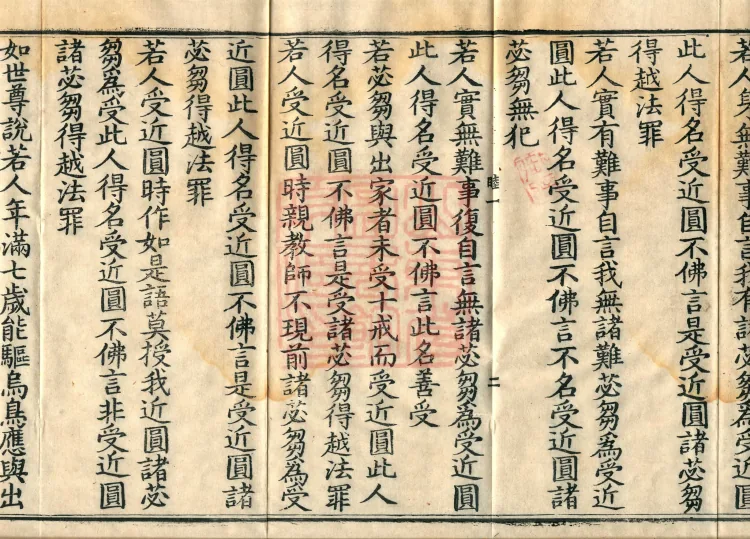 若人實無難事自言我有諸難苾芻為受近圓
此人得名受近圓不佛言是受近圓諸苾芻
得越法罪
若人實有難事自言我無諸難苾芻為受近
圓此人得名受近圓不佛言不名受近圓諸
苾芻無犯
睦一
二
若人實無難事復自言無諸苾芻為受近圓
此人得名受近圓不佛言此名善受
若苾芻與出家者未受十戒而受近圓此人
得名受近圓不佛言是受諸苾芻得越法罪
若人受近圓時親教師不現前諸苾芻為受
近圓此人得名受近圓不佛言是受近圓諸
苾芻得越法罪
若人受近圓時作如是語莫授我近圓諸苾
芻為受此人得名受近圓不佛言非受近圓
諸苾芻得越法罪
如世尊說若人年滿七歲能驅烏鳥應與出